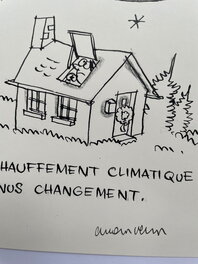 HAUFFEMENT CLIMATIQUE
NUS CHANGEMENT.